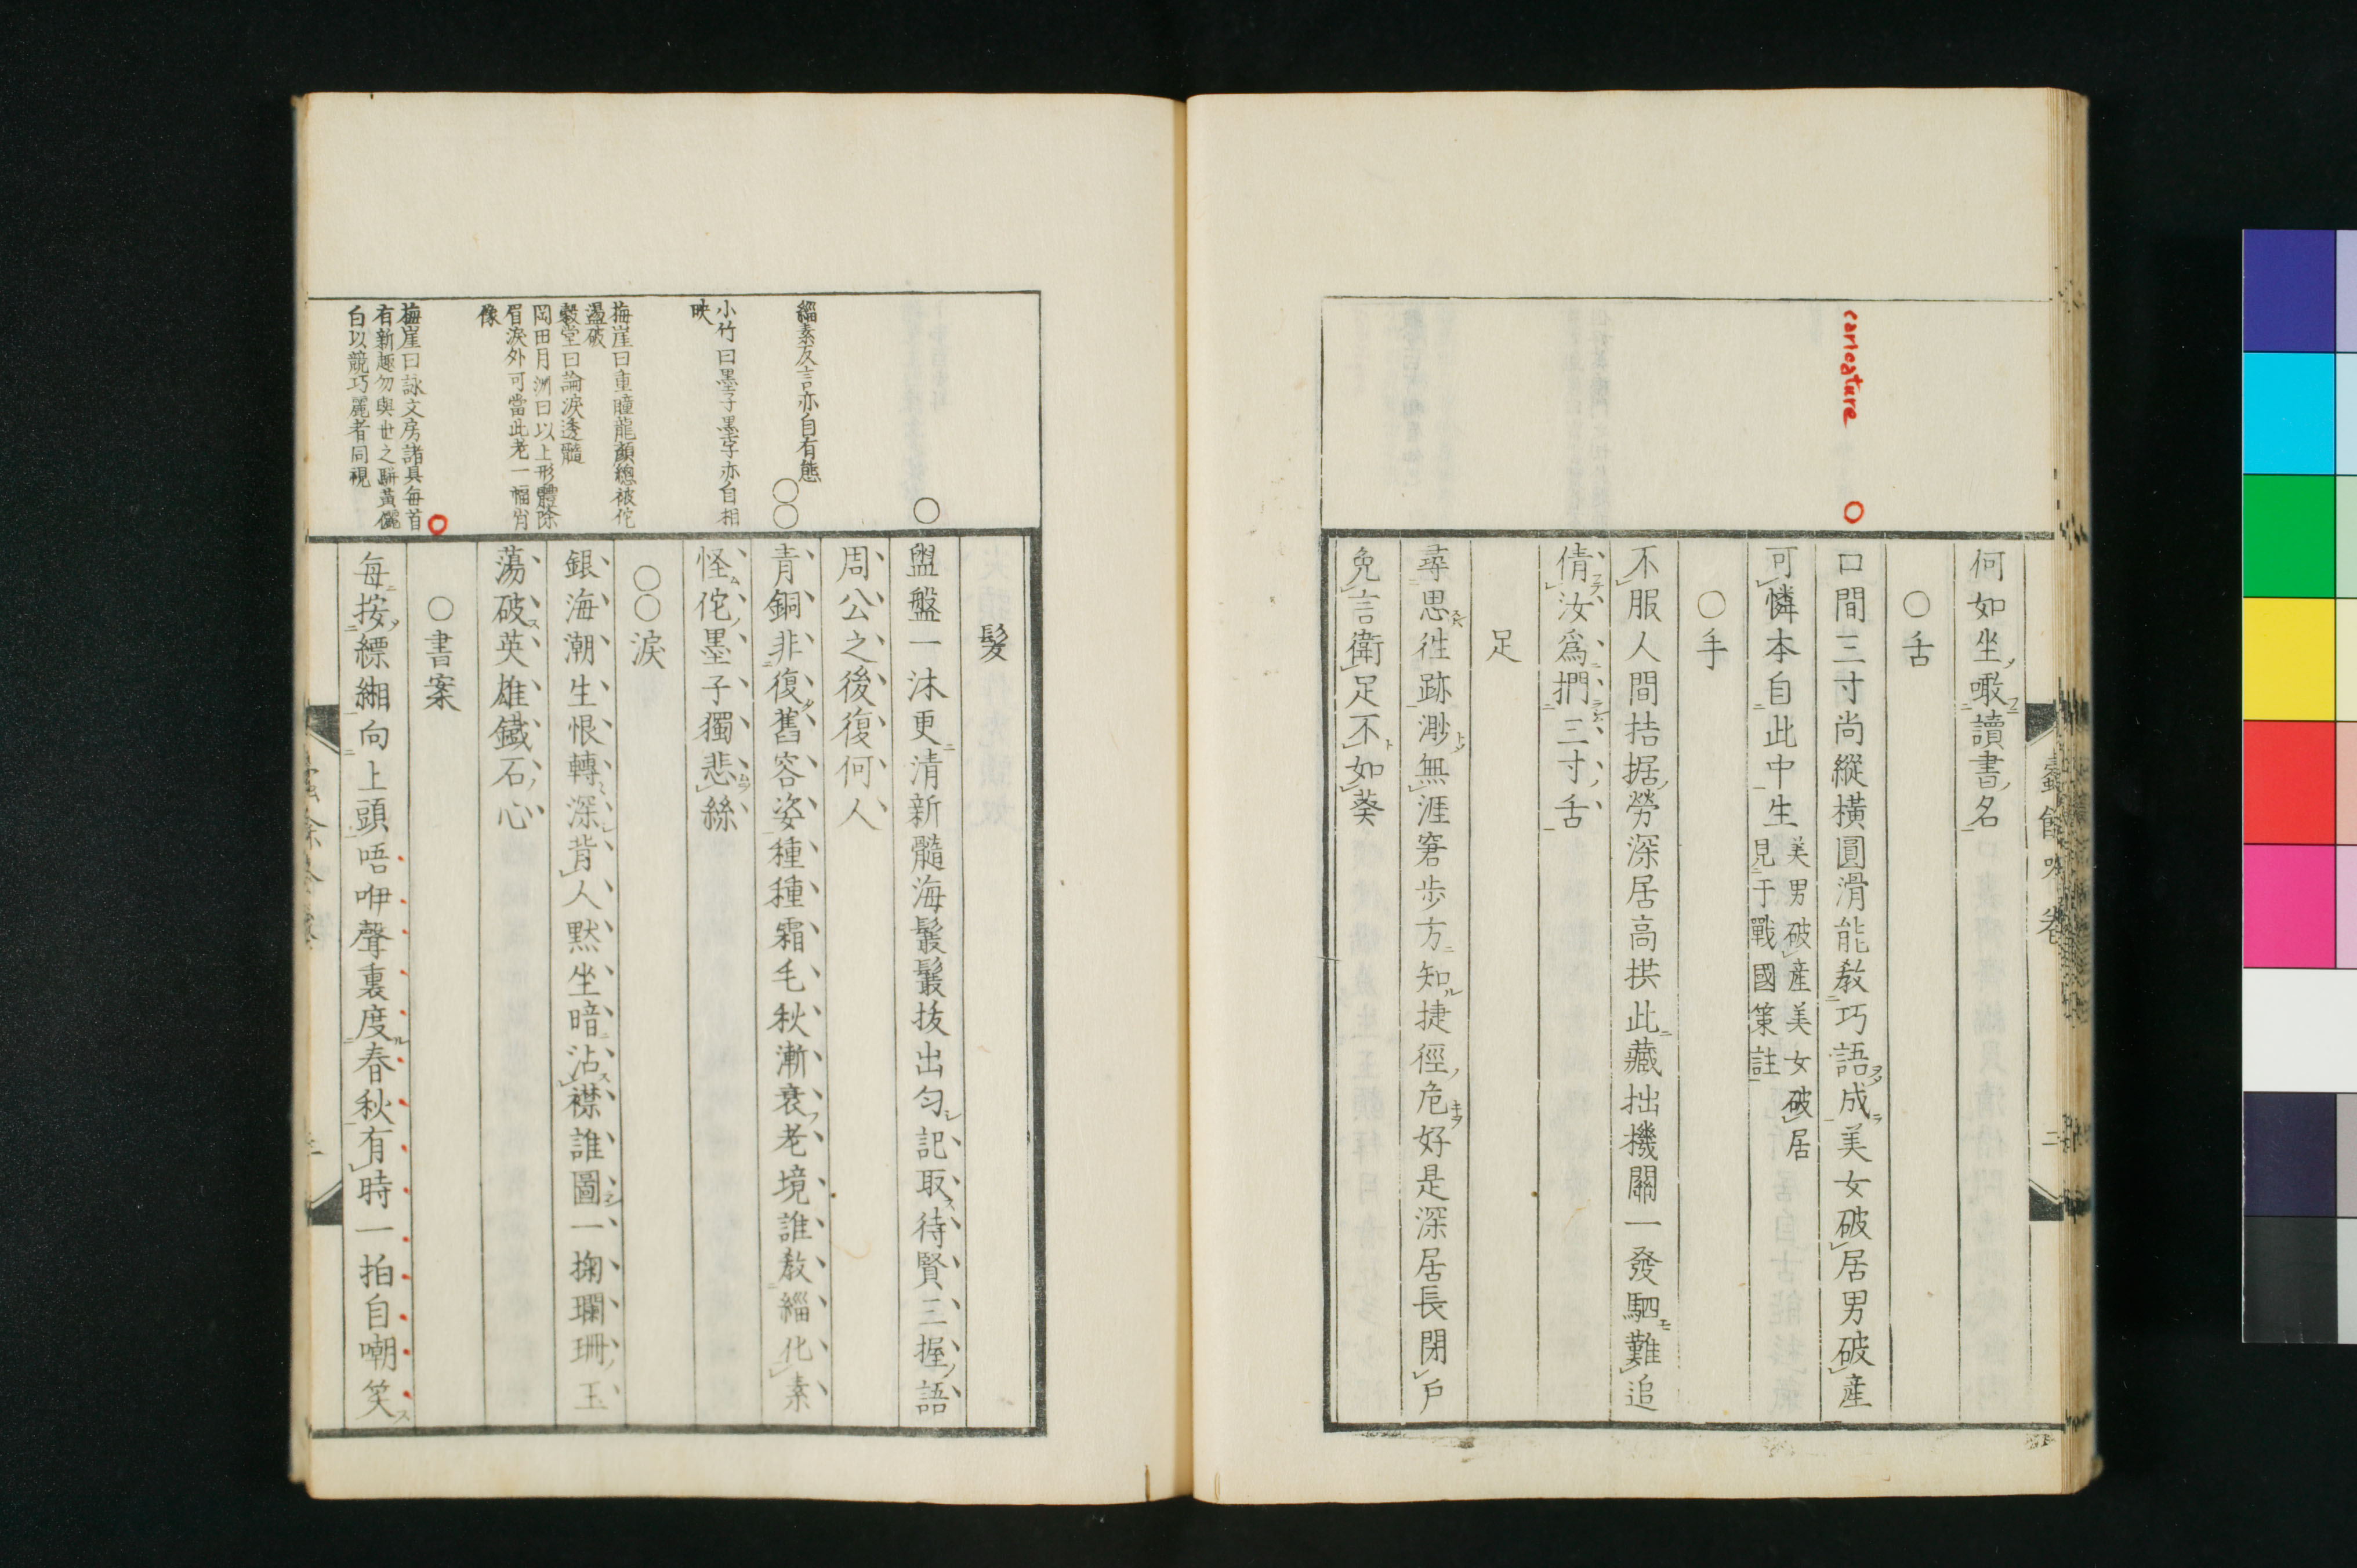 caricature
何如坐噉讀書名
○舌
口間三寸尚縱橫圓滑能教巧語成美女破居男破產
可憐本自此中生
美男破產美女破居
見于戰國策註
○手
不服人間拮据勞深居高拱此藏拙機關一發駟難追
倩汝爲捫三寸舌
足
尋思徃跡渺無涯窘步方知捷徑危好是深居長閉戶
免言衛足不如葵
髮
盥盤一沐更清新髓海鬖鬖拔出匀記取待賢三握語
周公之後復何人
緇素友言亦自有態
青銅非復舊容姿種種霜毛秋漸衰老境誰教緇化素
怪侘墨子獨悲絲
小竹曰墨子墨字亦自相
映
○○淚
銀海潮生恨轉深背人黙坐暗沾襟誰圖一掬瓓珊玉
蕩破英雄鐵石心
梅崖曰重瞳龍顏總被佗
盪破
穀堂曰論淚透髓
岡田月洲曰以上形體除
眉淚外可當此老一幅肖
像
○書案
每按縹緗向上頭唔咿聲裏度春秋有時一拍自嘲笑
梅崖曰詠文房諸具每首
有新趣勿與世之駢黃儷
白以競巧麗者同視